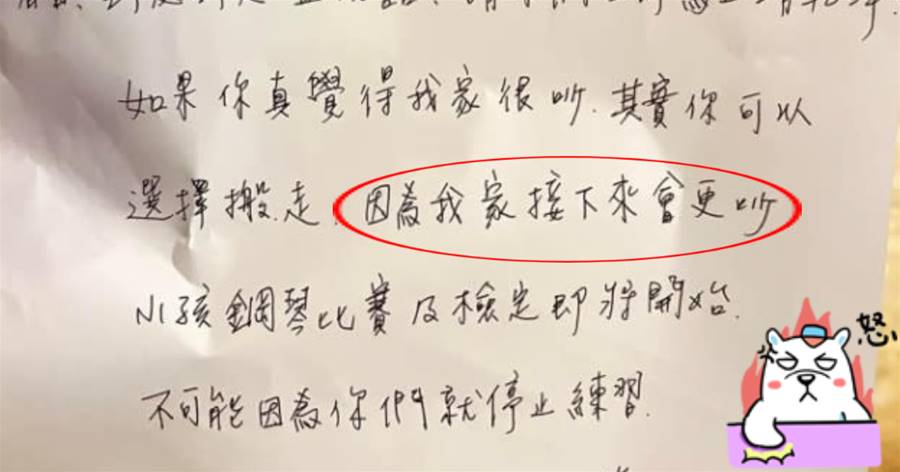 如果你真覺得我家很吵.其實你可以
選擇搬走.因為我家接下來會更吵
小孩鋼琴比賽及檢定即將開始.
不可能因為你們就停止練習.
怒